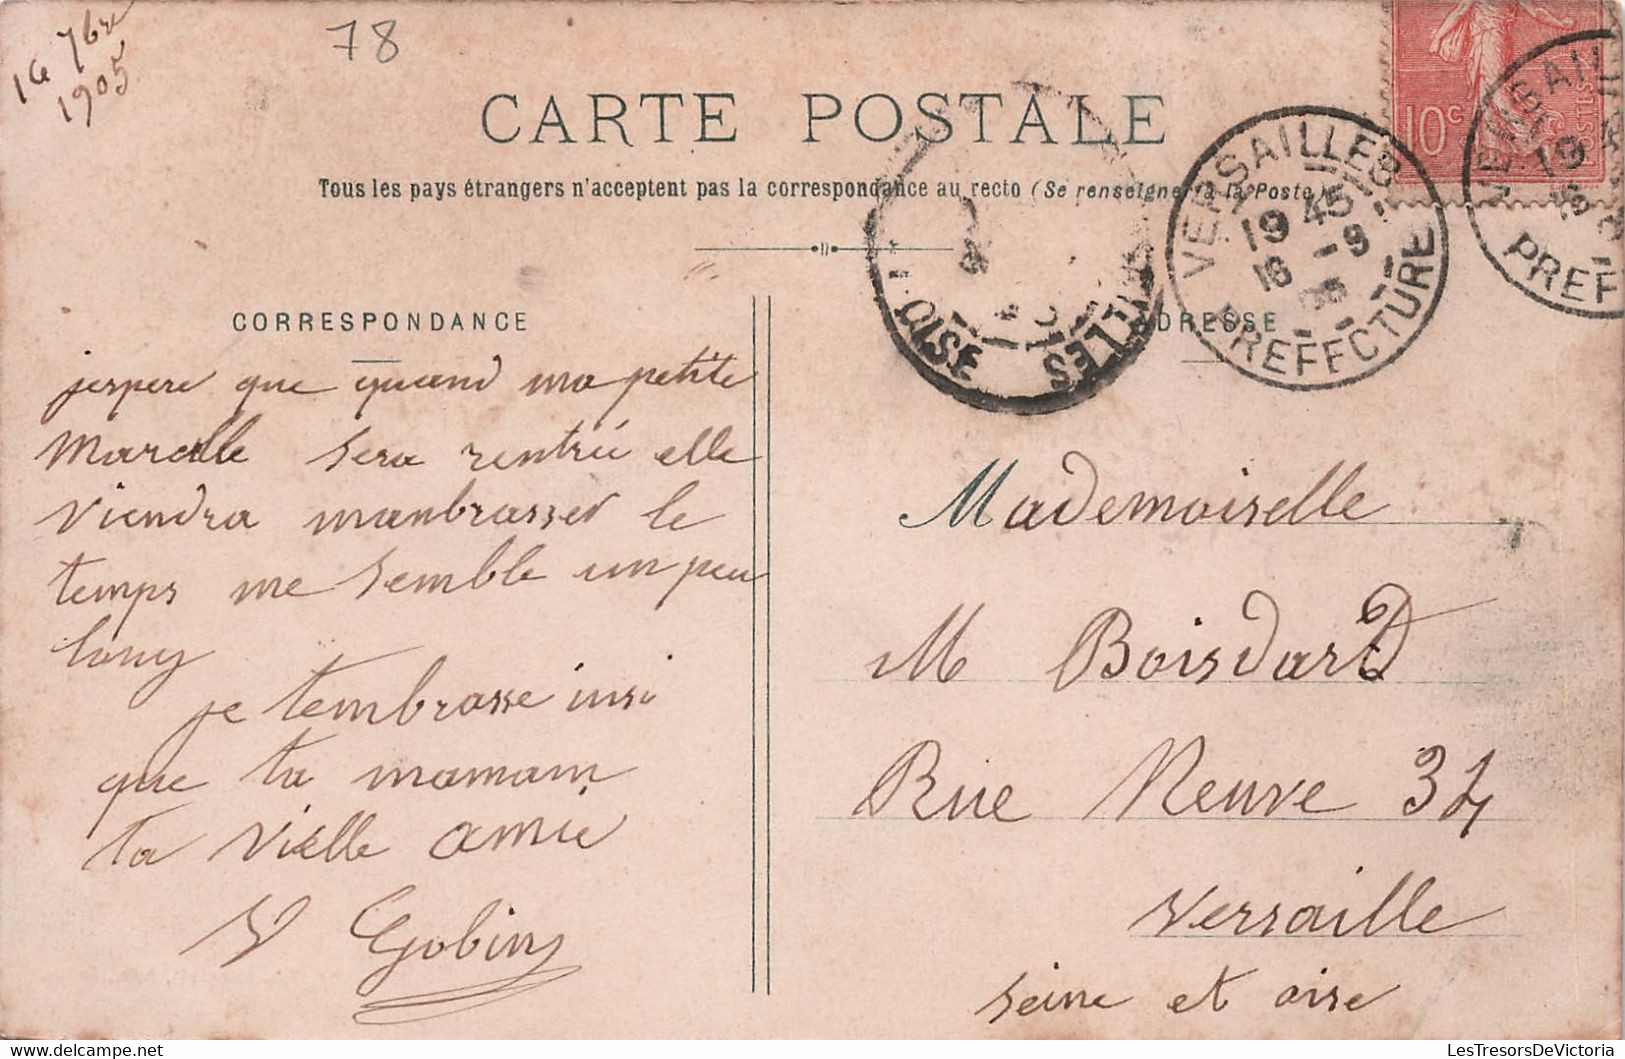 16 7bre
1905
78
CARTE POSTALE
Tous les pays étrangers n'acceptent pas la correspondance au recto (Se renseigner à la Poste)
10c
POSTES
VERSAILLES
19 45
16 - 9
05
PREFECTURE
VERSAILL
19
16
PREFE
OISE
AILLES
CORRESPONDANCE
jespere que quand ma petite
Marcelle sera rentrée elle
viendra manbrasser le
temps me semble un peu
long
je tembrasse insi
que ta maman
ta vielle amie
V Gobin
ADRESSE
Mademoiselle
M Boisdard
Rue Neuve 34
Versaille
seine et oise
LesTresorsDeVictoria